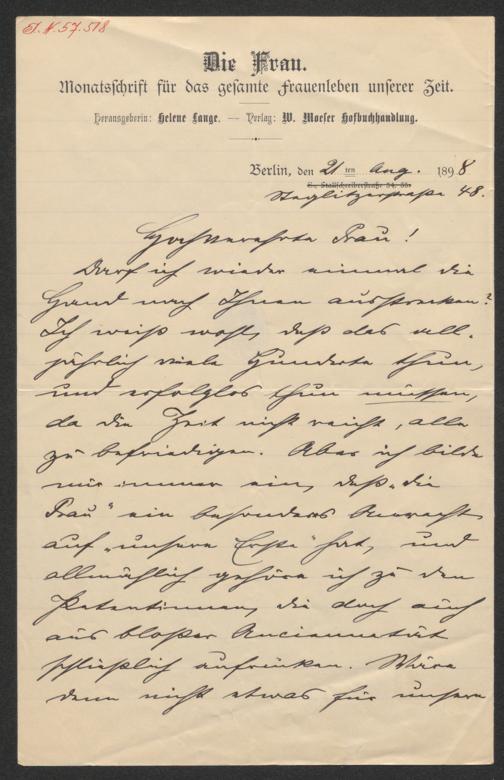 I. N. 57.518
Die Frau.
Monatsschrift für das gesamte Frauenleben unserer Zeit.
Herausgeberin: Helene Lange. — Verlag: W. Moeser Hofbuchhandlung.
Berlin, den 21 ten Aug. 1898
S., Stallschreiberstraße 34. 35.
Steglitzerstraße 48.
Hochverehrte Frau!
Darf ich wieder einmal die
Hand nach Ihnen ausstrecken?
Ich weiß wohl, daß das all-
jährlich viele Hunderte thun,
und erfolglos thun müssen,
da die Zeit nicht reicht, alle
zu befriedigen. Aber ich bilde
mir immer ein, daß „die
Frau" ein besonderes Anrecht
auf „unsere Erste" hat, und
allmählich gehöre ich zu den
Petentinnen, die doch auch
aus bloßer Anciennetät
schließlich aufrücken. Wäre
denn nicht etwas für unsere